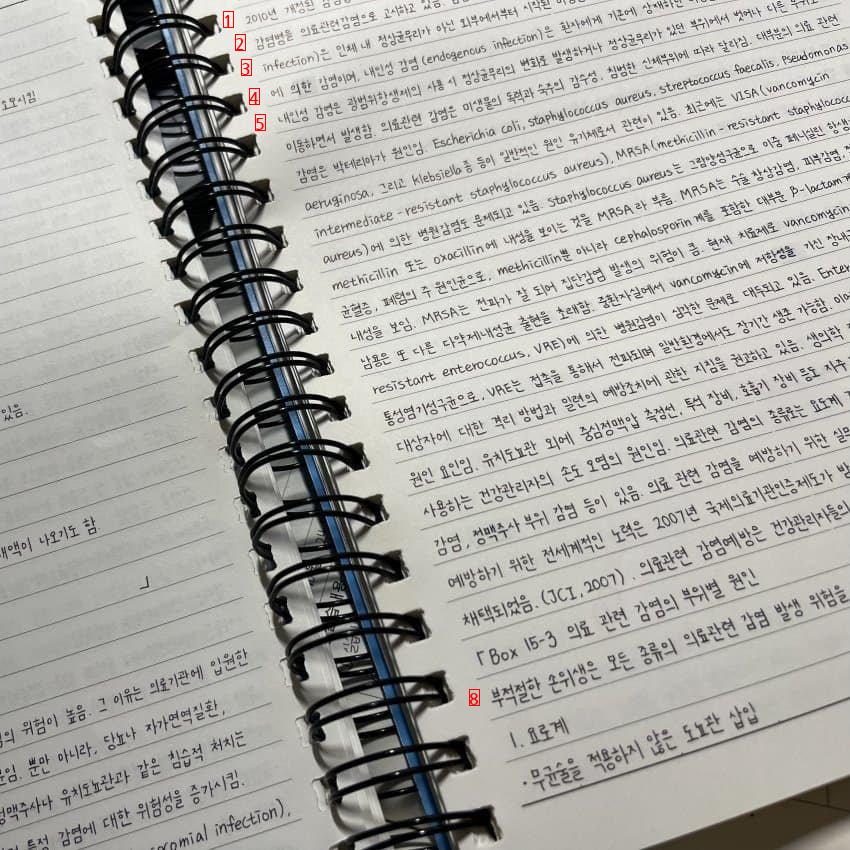 도모시킴
있음.
대액이 나오기도 함.
」
의 위험이 높음. 그 이유는 의료기관에 입원한
뿐만 아니라, 당뇨나 자가면역질환,
정맥주사나 유치도뇨관과 같은 침습적 처치는
특정 감염에 대한 위험성을 증가시킴.
infection),
1 2010년 개정된
2 감염병을 의료관련감염으로 고시하고 있음.
3 infection)은 인체 내 정상균무리가 아닌 외부에서부터 시작된
4 에 의한 감염이며, 내인성 감염(endogenous infection)은 환자에게 기존에 상재하던
5 내인성 감염은 광범위항생제의 사용 시 정상균무리의 변화로 발생하거나 정상균무리가 있던 부위에서 벗어나 다른
이동하면서 발생함. 의료관련 감염은 미생물의 독력과 숙주의 감수성, 침범한 신체부위에 따라 달라짐. 대부분의 의료 관련
감염은 박테리아가 원인임. Escherichia coli, staphylococcus aureus, streptococcus faecalis, pseudomonas
aeruginosa, 그리고 klebsiella종 등이 일반적인 원인 유기체로서 관련이 있음. 최근에는 VISA(vancomycin
intermediate-resistant staphylococcus aureus), MRSA(methicillin-resistant staphylococcus
aureus)에 의한 병원감염도 문제되고 있음. staphylococcus aureus는 그람양성균으로 이중 페니실린 항생
methicillin 또는 oxacillin에 내성을 보이는 것을 MRSA라 부름. MRSA는 수술 창상감염, 피부감염,
균혈증, 폐렴의 주 원인균으로, methicillin뿐 아니라 cephalosporin계를 포함한 대부분 β-lactam계
내성을 보임. MRSA는 전파가 잘 되어 집단감염 발생의 위험이 큼. 현재 치료제로 vancomycin
남용은 또 다른 다약제내성균 출현을 초래함. 중환자실에서 vancomycin에 저항성을 가진 장내
resistant enterococcus, VRE)에 의한 병원감염이 심각한 문제로 대두되고 있음. Enter
통성혐기성구균으로, VRE는 접촉을 통해서 전파되며 일반환경에서도 장기간 생존 가능함.
대상자에 대한 격리 방법과 일련의 예방조치에 관한 지침을 권고하고 있음. 생의학
원인 요인임. 유치도뇨관 외에 중심정맥압 측정선, 투석 장비, 호흡기 장비 등도 자주
사용하는 건강관리자의 손도 오염의 원인임. 의료관련 감염의 종류로는 요도계
감염, 정맥주사 부위 감염 등이 있음. 의료 관련 감염을 예방하기 위한
예방하기 위한 전세계적인 노력은 2007년 국제의료기관인증제도가
채택되었음. (JCI, 2007). 의료관련 감염예방은 건강관리자들의
「Box 15-3 의료 관련 감염의 부위별 원인
8 부적절한 손위생은 모든 종류의 의료관련 감염 발생 위험을
1. 요로계
· 무균술을 적용하지 않은 도뇨관 삽입